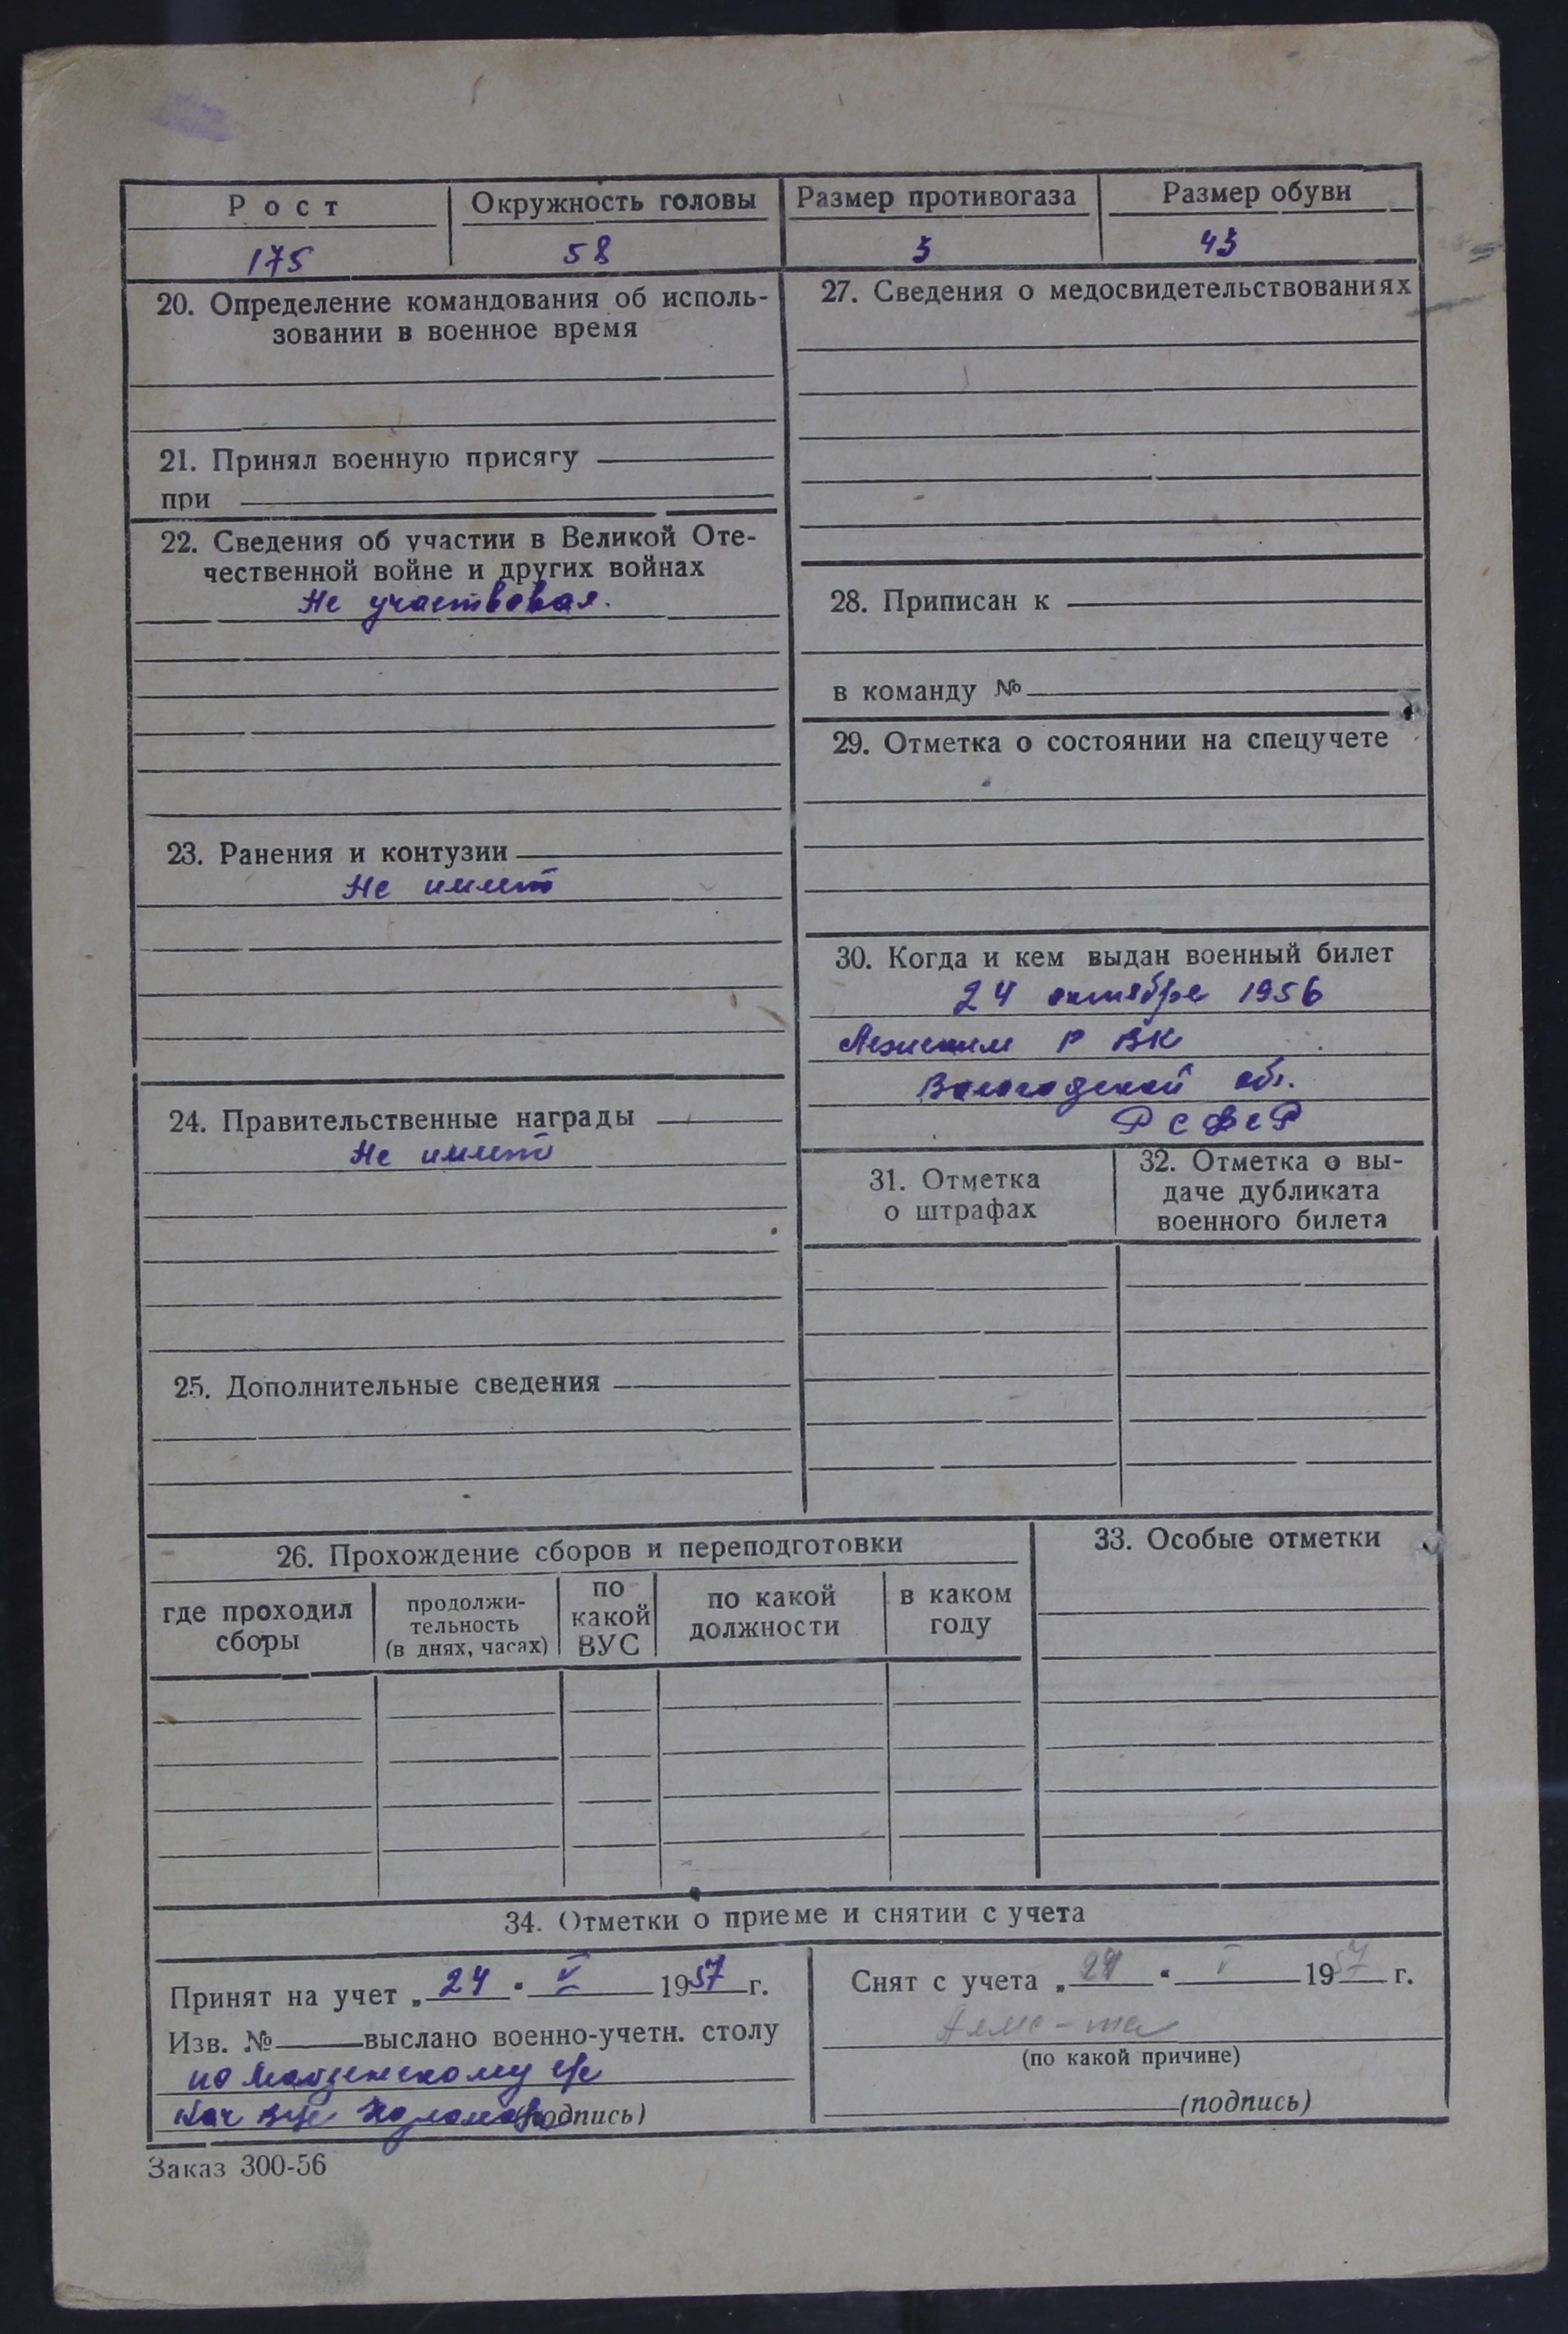 Рост
Окружность головы
Размер противогаза
Размер обуви
175
58
3
43
20. Определение командования об исполь-
зовании в военное время
21. Принял военную присягу
при
22. Сведения об участии в Великой Оте-
чественной войне и других войнах
Не участвовал.
23. Ранения и контузии
Не имеет
24. Правительственные награды
Не имеет
25. Дополнительные сведения
27. Сведения о медосвидетельствованиях
28. Приписан к
в команду №
29. Отметка о состоянии на спецучете
30. Когда и кем выдан военный билет
24 октября 1956
РВК
Вологодской обл.
РСФСР
31. Отметка
о штрафах
32. Отметка о вы-
даче дубликата
военного билета
26. Прохождение сборов и переподготовки
где проходил
сборы
продолжи-
тельность
(в днях, часах)
по
какой
ВУС
по какой
должности
в каком
году
33. Особые отметки
34. Отметки о приеме и снятии с учета
Принят на учет „ 24 " V 1957 г.
Изв. № выслано военно-учетн. столу
по с/с
Нач ВУС (подпись)
Снят с учета „ 24 " V 1957 г.
(по какой причине)
(подпись)
Заказ 300-56